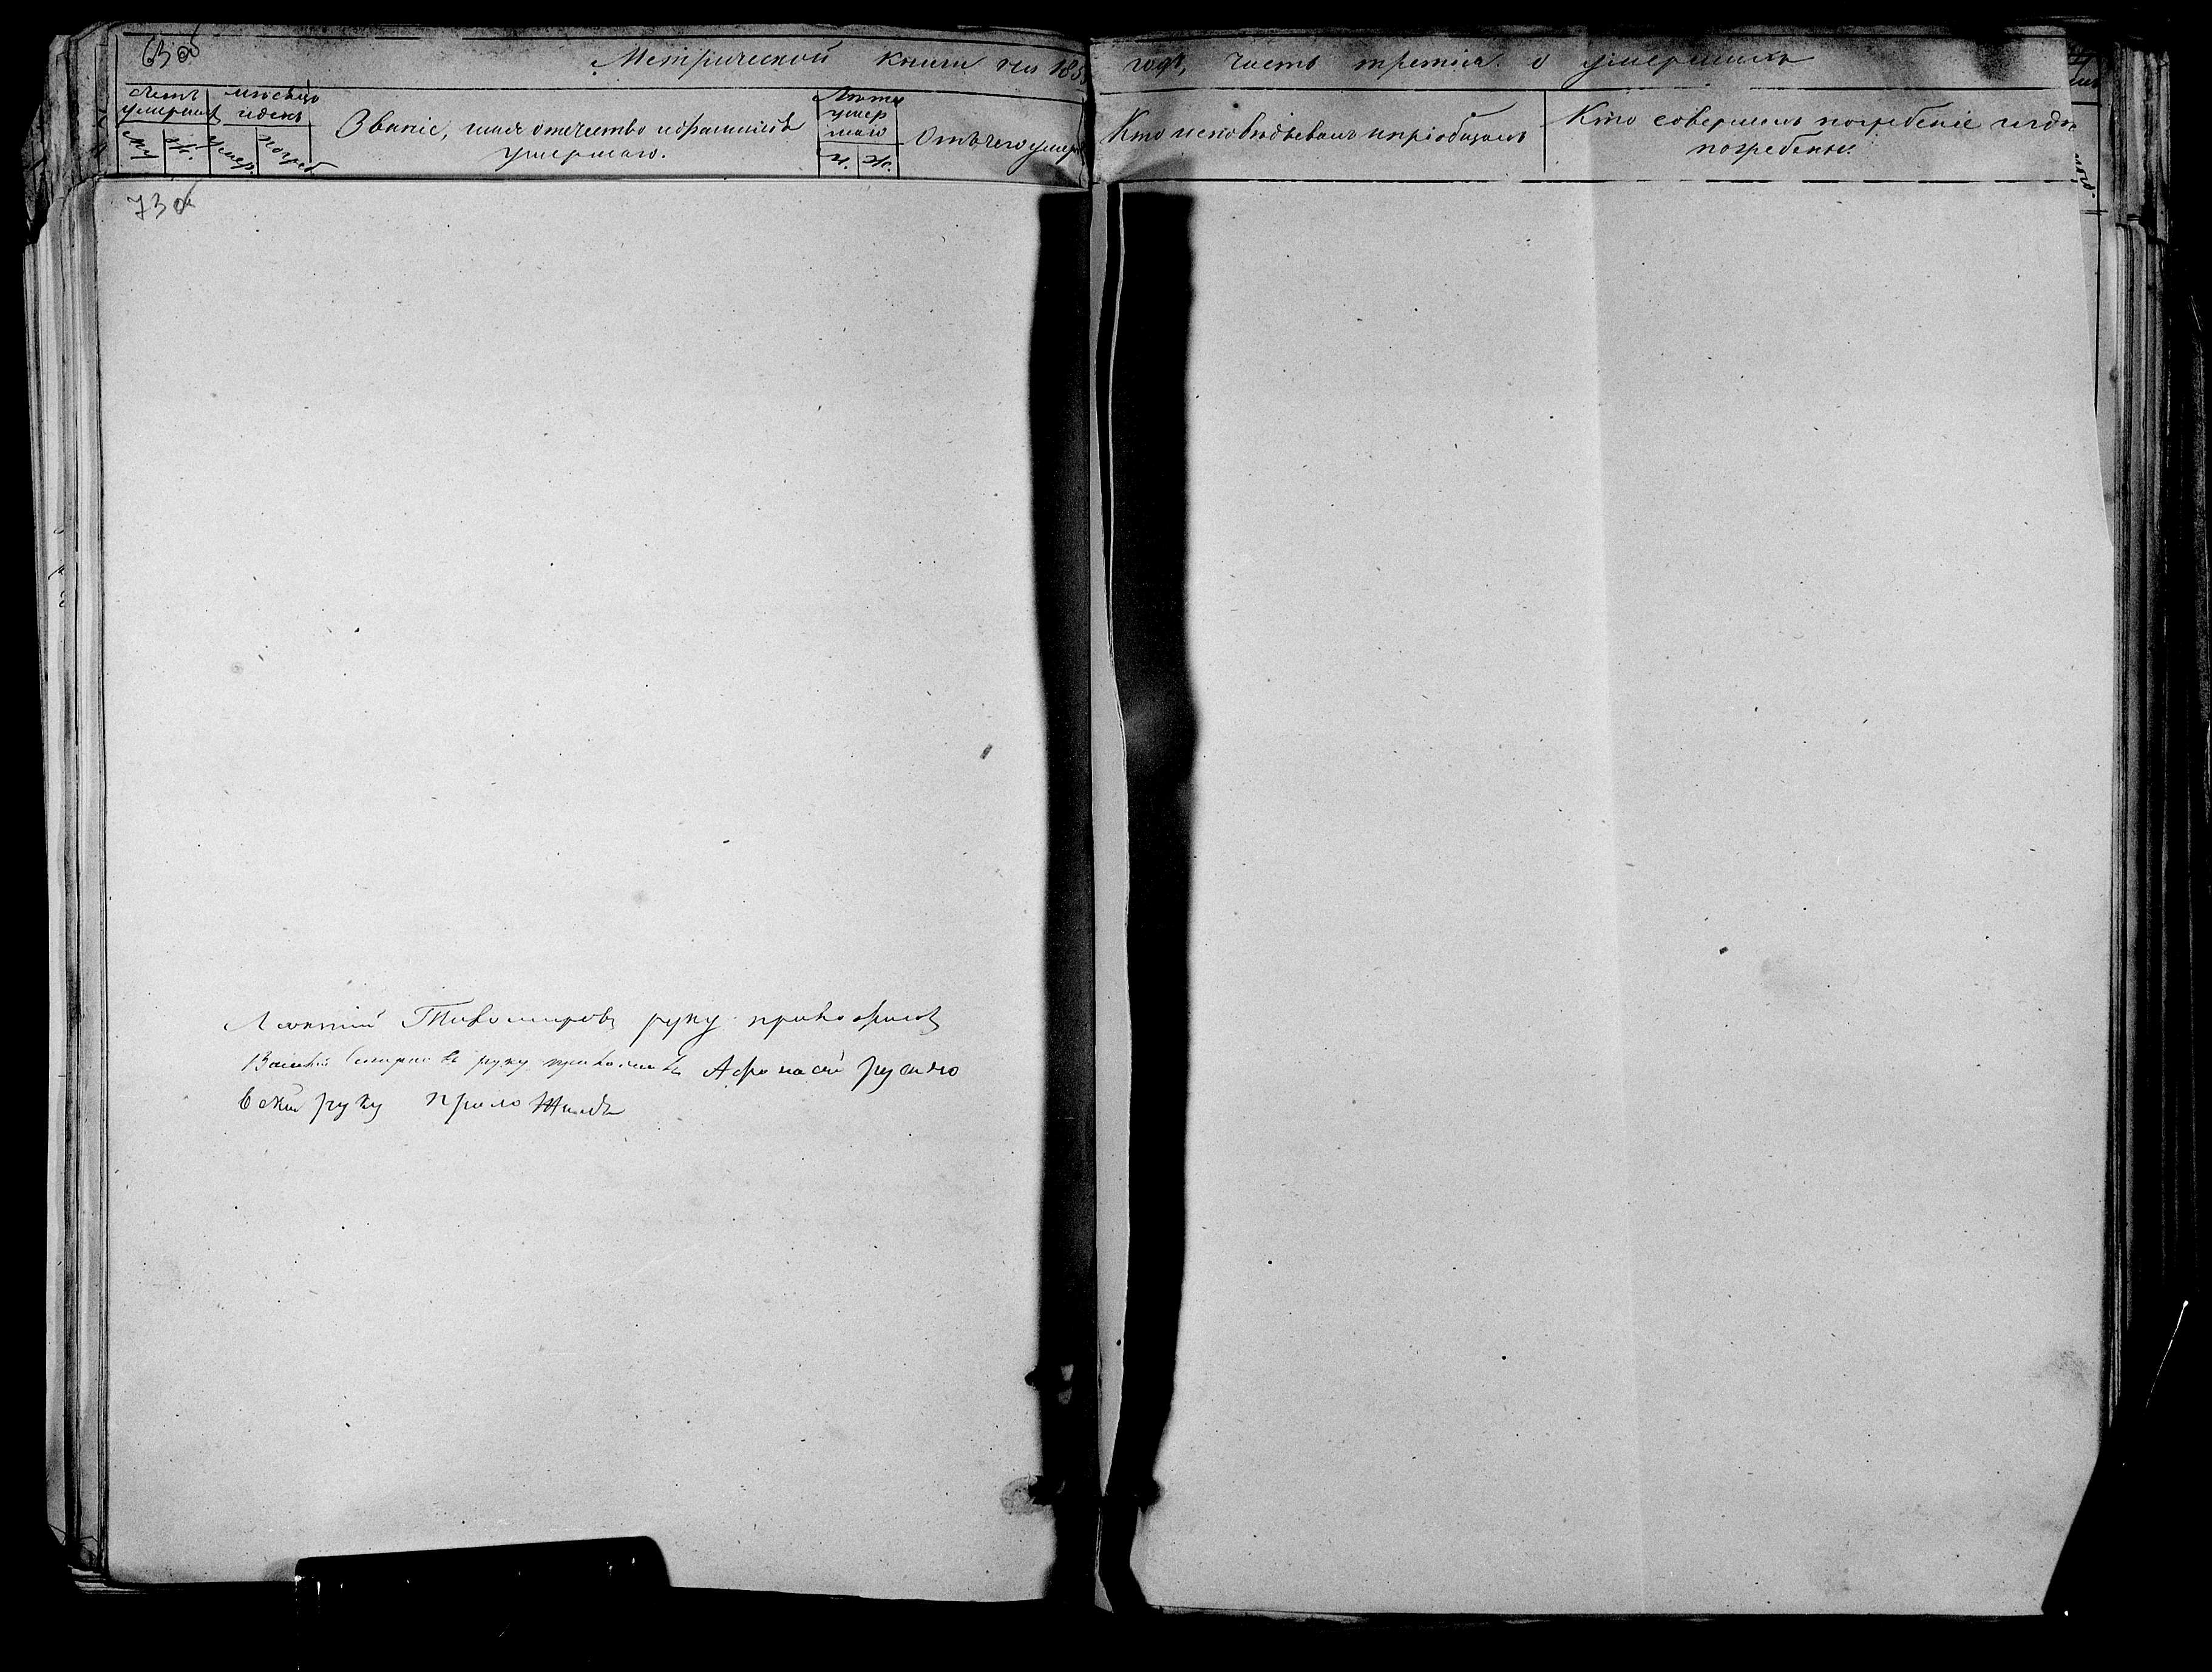 63 об
Метрической книги на 185 года, часть третія о умершихъ
Счетъ умершихъ
Му
Ж.
мѣсяцъ и день
Умер.
Погреб
Званіе, имя отчество и фамилія умершаго.
Лѣта умер шаго
М.
Ж.
Отъ чего умеръ
Кто исповѣдывалъ и пріобщалъ
Кто совершалъ погребеніе и гдѣ погребены.
73 об
Леонтій Тихомировъ руку приложилъ
Василій руку приложилъ Афонасій
вскій руку приложилъ